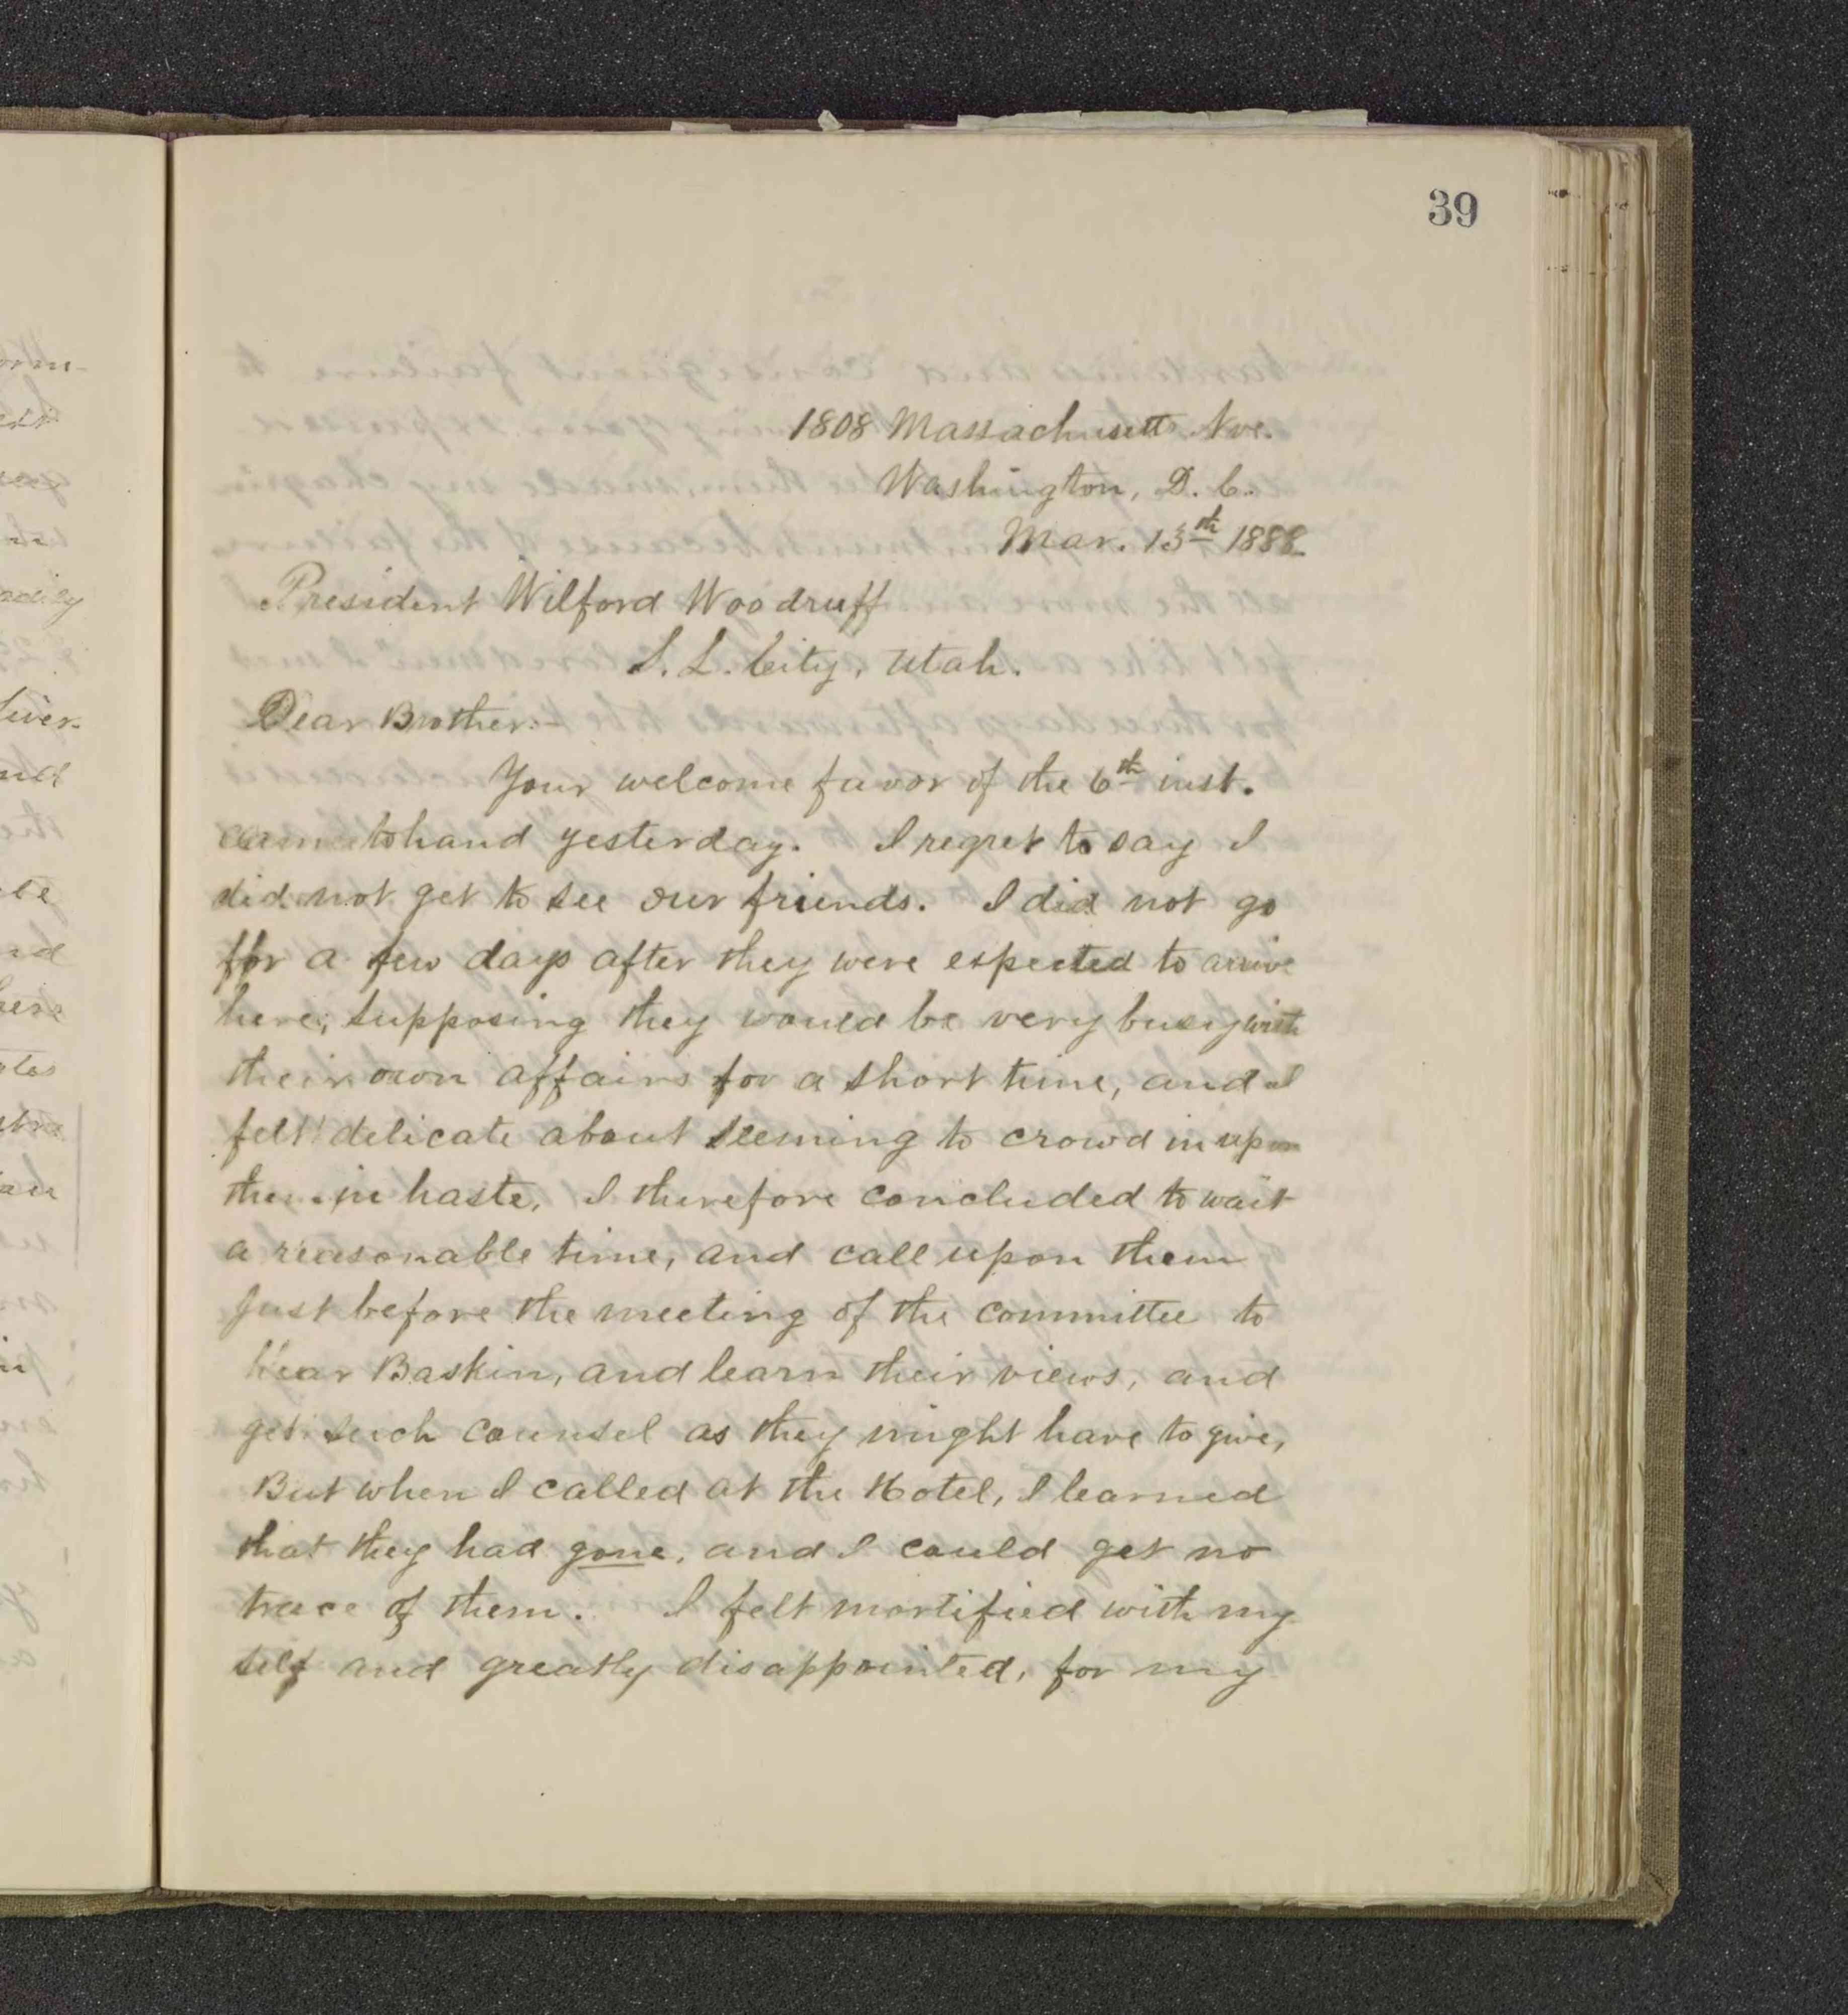 39
1808 Massachusetts Ave.
Washington, D. C.
Mar. 13th 1888
President Wilford Woodruff
S. L. City, Utah.
Dear Brother:-
Your welcome favor of the 6th inst.
came to hand yesterday. I regret to say I
did not get to see our friends. I did not go
for a few days after they were expected to arrive
here, supposing they would be very busy with
their own affairs for a short time, and I
felt delicate about seeming to crowd in upon
them in haste, I therefore concluded to wait
a reasonable time, and call upon them
just before the meeting of the committee to
hear Baskin, and learn their views, and
get such counsel as they might have to give,
But when I called at the Hotel, I learned
that they had gone, and I could get no
trace of them. I felt mortified with my
self and greatly disappointed, for my